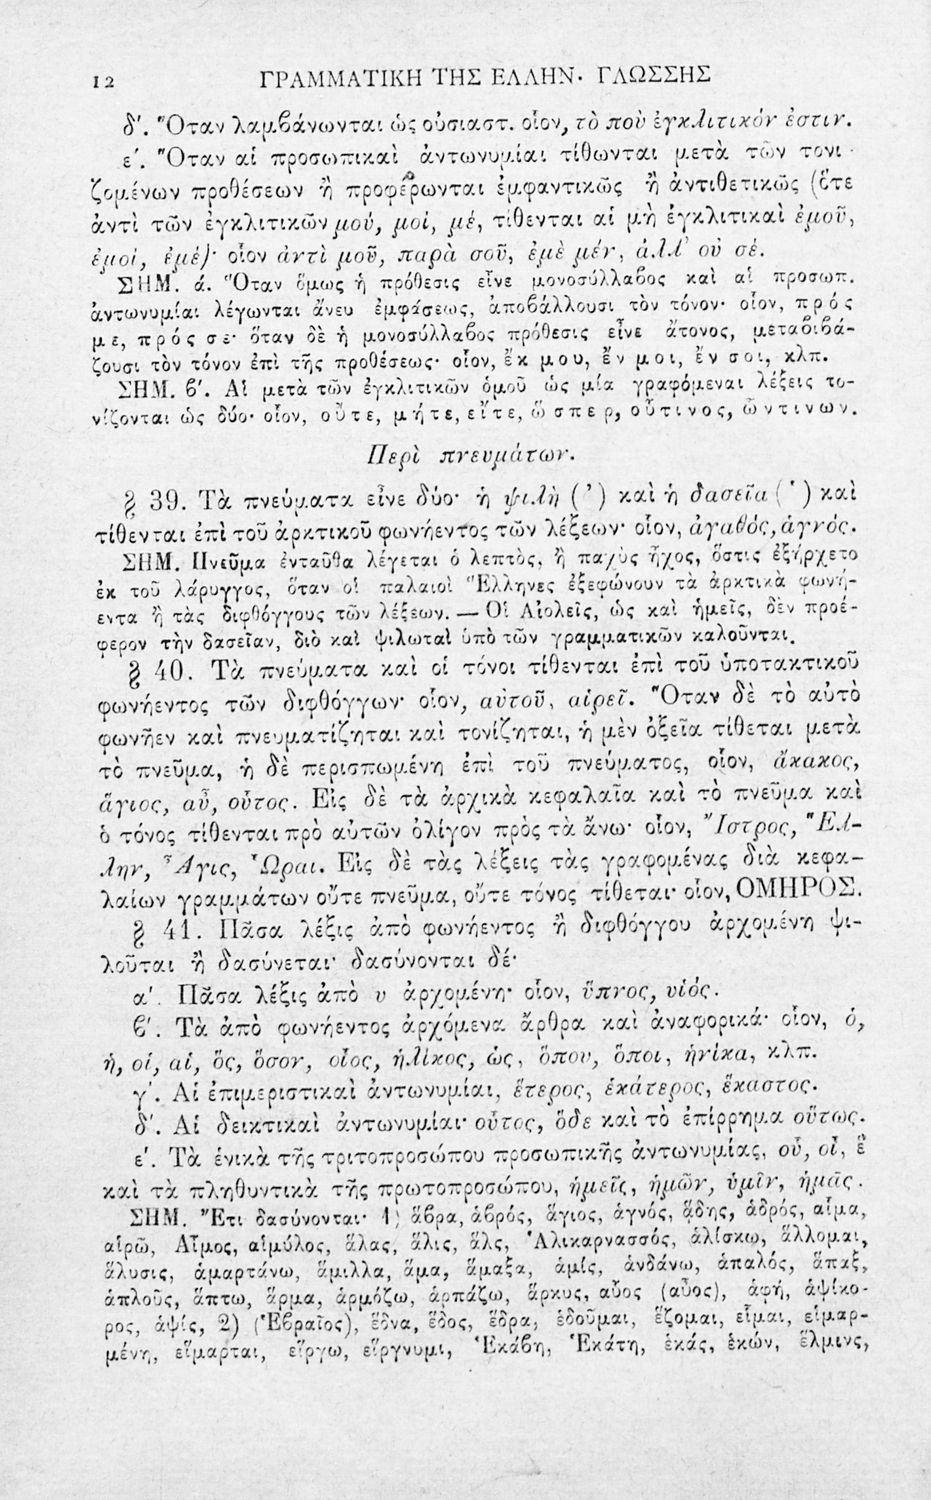 12 ΓΡΑΜΜΑΤΙΚΗ ΤΗΣ ΕΛΛΗΝ. ΓΛΩΣΣΗΣ
δ'. Ὅταν λαμβάνωνται ὡς οὐσιαστ. οἷον, τὸ ποὺ ἐγκλιτικόν ἐστιν.
ε'. Ὅταν αἱ προσωπικαὶ ἀντωνυμίαι τίθωνται μετὰ τῶν τονι-
ζομένων προθέσεων ἢ προφέρωνται ἐμφαντικῶς ἢ ἀντιθετικῶς (ὅτε
ἀντὶ τῶν ἐγκλιτικῶν μού, μοί, μέ, τίθενται αἱ μὴ ἐγκλιτικαὶ ἐμοῦ,
ἐμοί, ἐμέ)· οἷον ἀντὶ μοῦ, παρὰ σοῦ, ἐμὲ μέν, ἀλλ' οὐ σέ.
ΣΗΜ. ά. Ὅταν ὅμως ἡ πρόθεσις εἶνε μονοσύλλαβος καὶ αἱ προσωπ.
ἀντωνυμίαι λέγωνται ἄνευ ἐμφάσεως, ἀποβάλλουσι τὸν τόνον· οἷον, πρός
με, πρός σε· ὅταν δὲ ἡ μονοσύλλαβος πρόθεσις εἶνε ἄτονος, μεταβιβά-
ζουσι τὸν τόνον ἐπὶ τῆς προθέσεως· οἷον, ἔκ μου, ἔν μοι, ἔν σοι, κλπ.
ΣΗΜ. β'. Αἱ μετὰ τῶν ἐγκλιτικῶν ὁμοῦ ὡς μία γραφόμεναι λέξεις το-
νίζονται ὡς δύο· οἷον, οὔτε, μήτε, εἴτε, ὥσπερ, οὗτινος, ὧντινων.
Περὶ πνευμάτων.
§ 39. Τὰ πνεύματα εἶνε δύο· ἡ ψιλὴ (᾿) καὶ ἡ δασεῖα (῾) καὶ
τίθενται ἐπὶ τοῦ ἀρκτικοῦ φωνήεντος τῶν λέξεων· οἷον, ἀγαθός, ἁγνός.
ΣΗΜ. Πνεῦμα ἐνταῦθα λέγεται ὁ λεπτὸς, ἢ παχὺς ἦχος, ὅστις ἐξήρχετο
ἐκ τοῦ λάρυγγος, ὅταν οἱ παλαιοὶ Ἕλληνες ἐξεφώνουν τὰ ἀρκτικὰ φωνή-
εντα ἢ τὰς διφθόγγους τῶν λέξεων. — Οἱ Αἰολεῖς, ὡς καὶ ἡμεῖς, δὲν προέ-
φερον τὴν δασεῖαν, διὸ καὶ ψιλωταὶ ὑπὸ τῶν γραμματικῶν καλοῦνται.
§ 40. Τὰ πνεύματα καὶ οἱ τόνοι τίθενται ἐπὶ τοῦ ὑποτακτικοῦ
φωνήεντος τῶν διφθόγγων· οἷον, αὐτοῦ, αἱρεῖ. Ὅταν δὲ τὸ αὐτὸ
φωνῆεν καὶ πνευματίζηται καὶ τονίζηται, ἡ μὲν ὀξεῖα τίθεται μετὰ
τὸ πνεῦμα, ἡ δὲ περισπωμένη ἐπὶ τοῦ πνεύματος, οἷον, ἄκακος,
ἅγιος, αὖ, οὗτος. Εἰς δὲ τὰ ἀρχικὰ κεφαλαῖα καὶ τὸ πνεῦμα καὶ
ὁ τόνος τίθενται πρὸ αὐτῶν ὀλίγον πρὸς τὰ ἄνω· οἷον, Ἴστρος, Ἕλ-
λην, Ἆγις, Ὧραι. Εἰς δὲ τὰς λέξεις τὰς γραφομένας διὰ κεφα-
λαίων γραμμάτων οὔτε πνεῦμα, οὔτε τόνος τίθεται· οἷον, ΟΜΗΡΟΣ.
§ 41. Πᾶσα λέξις ἀπὸ φωνήεντος ἢ διφθόγγου ἀρχομένη ψι-
λοῦται ἢ δασύνεται· δασύνονται δέ·
α'. Πᾶσα λέξις ἀπὸ υ ἀρχομένη· οἷον, ὕπνος, υἱός.
β'. Τὰ ἀπὸ φωνήεντος ἀρχόμενα ἄρθρα καὶ ἀναφορικά· οἷον, ὁ,
ἡ, οἱ, αἱ, ὅς, ὅσον, οἷος, ἡλίκος, ὡς, ὅπου, ὅποι, ἡνίκα, κλπ.
γ'. Αἱ ἐπιμεριστικαὶ ἀντωνυμίαι, ἕτερος, ἑκάτερος, ἕκαστος.
δ'. Αἱ δεικτικαὶ ἀντωνυμίαι· οὗτος, ὅδε καὶ τὸ ἐπίρρημα οὕτως.
ε'. Τὰ ἑνικὰ τῆς τριτοπροσώπου προσωπικῆς ἀντωνυμίας, οὗ, οἷ, ἓ
καὶ τὰ πληθυντικὰ τῆς πρωτοπροσώπου, ἡμεῖς, ἡμῶν, ὑμῖν, ἡμᾶς.
ΣΗΜ. Ἔτι δασύνονται· 1) ἅβρα, ἁβρός, ἅγιος, ἁγνός, ᾅδης, ἁδρός, αἷμα,
αἱρῶ, Αἷμος, αἱμύλος, ἅλας, ἅλις, ἅλς, Ἁλικαρνασσός, ἁλίσκω, ἅλλομαι,
ἅλυσις, ἁμαρτάνω, ἅμιλλα, ἅμα, ἅμαξα, ἁμίς, ἁνδάνω, ἁπαλός, ἅπαξ,
ἁπλοῦς, ἅπτω, ἅρμα, ἁρμόζω, ἁρπάζω, ἅρκυς, αὗος (αὖος), ἁφή, ἁψίκο-
ρος, ἁψίς, 2) (Ἑβραῖος), ἕδνα, ἕδος, ἕδρα, ἑδοῦμαι, ἕζομαι, εἷμαι, εἱμαρ-
μένη, εἵμαρται, εἵργω, εἵργνυμι, Ἑκάβη, Ἑκάτη, ἑκάς, ἑκών, ἕλμινς,